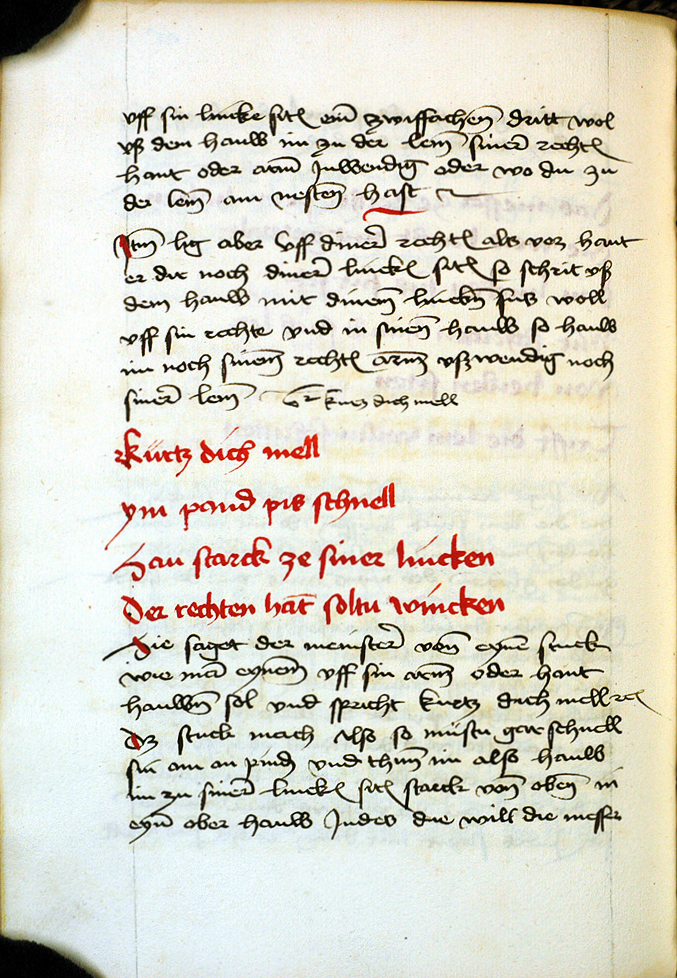 vff sin lincke sitẽ ein zwiffachenn dritt wol
vß dem hauw im zu der lem siner rechtẽ
hant oder arm Inwendig oder wo du zu
der lem am nesten hast
Itm lig aber vff diner rechtẽ als vor haut
er dir noch diner linckẽ sitẽ so schrit vß
dem hauw mit dinem linckñ fus woll
vff sin rechte vnd in sinen hauw so hauw
im noch sinem rechtẽ arm vßwendig noch
siner lem kurtz dich mell
kürtz dich mell
ym pand pis schnell
Hau starck ze siner lincken
Der rechten hat̃ soltu wincken
Hie saget der meinster von eyne stuck
wie ma eynem vff sin arm oder hant
hauwen sol vnd spricht kurtz dich mell
Dz stuck mach Also so müstu gar schnell
sin am an pind vnd thun im also hauw
im zu siner linckẽ sitẽ starck von oben in
eyn ober hauw Indes die will die messer